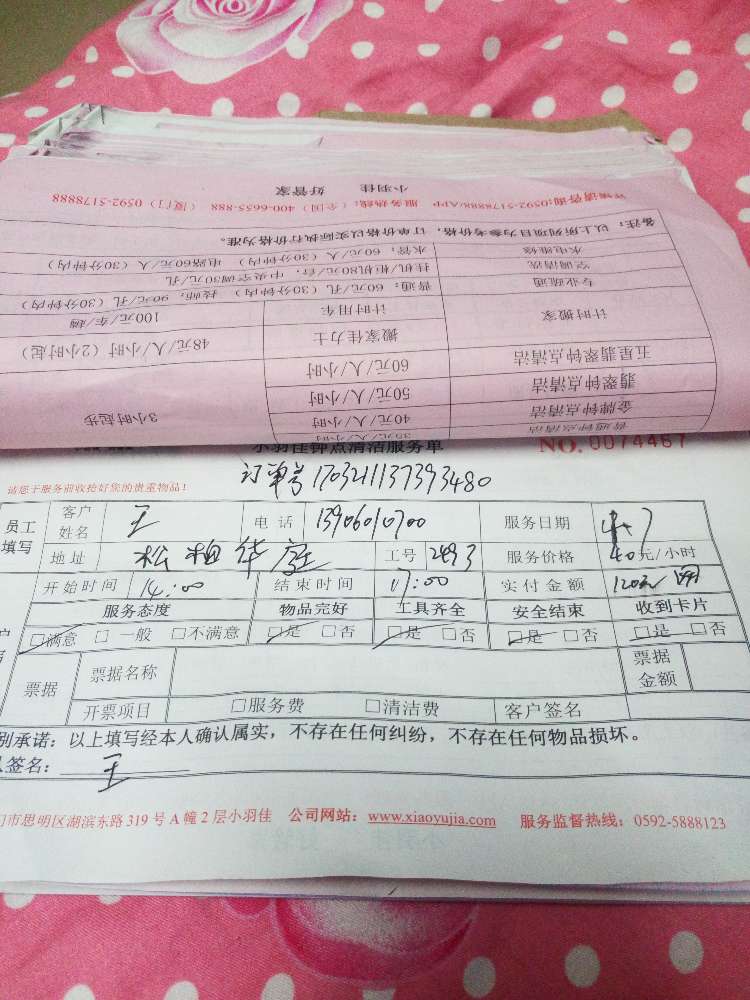 详情请咨询:0592-5178888/APP 服务热线：(全国) 400-6655-888 (厦门) 0592-5178888
小羽佳 好管家
备注：以上所列项目为参考价格，订单价格以实际执行价格为准。
水电维修 水管：60元/人（30分钟内） 电路60元/人（30分钟内）
空调清洗 挂机/柜机80元/台，中央空调30元/孔
专业疏通 普通：60元/孔（30分钟内） 技师：90元/孔（30分钟内）
计时搬家 计时用车 100元/车/趟
搬家佳力士 48元/人/小时（2小时起）
五星翡翠钟点清洁 60元/人/小时
翡翠钟点清洁 50元/人/小时 3小时起步
金牌钟点清洁 40元/人/小时
普通钟点清洁 30元/人/小时
小羽佳钟点清洁服务单 NO.0074467
请您于服务前收拾好您的贵重物品！
订单号
员工填写 客户姓名 王 电话 服务日期 4.7
地址 松柏华庭 工号 2493 服务价格 40元/小时
开始时间 14:00 结束时间 17:00 实付金额 120元
服务态度 物品完好 工具齐全 安全结束 收到卡片
□满意 □一般 □不满意 □是 □否 □是 □否 □是 □否 □是 □否
票据 票据名称 票据金额
开票项目 □服务费 □清洁费 客户签名
别承诺：以上填写经本人确认属实，不存在任何纠纷，不存在任何物品损坏。
签名： 王
门市思明区湖滨东路319号A幢2层小羽佳 公司网站：www.xiaoyujia.com 服务监督热线：0592-5888123